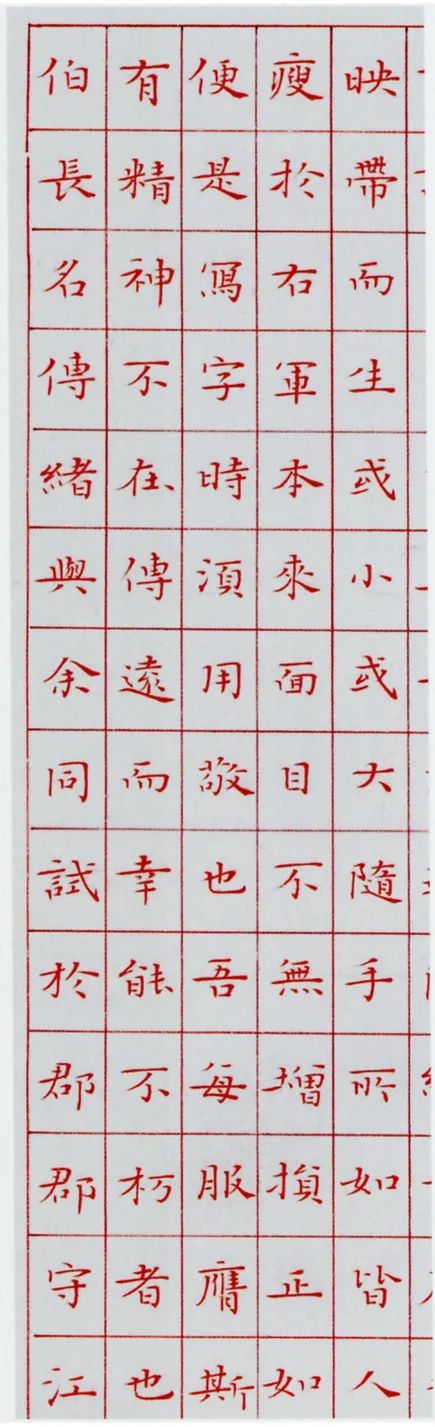 映帶而生或小或大隨手所如皆人
瘦於右軍本來面目不無增損正如
便是寫字時須用敬也吾每服膺斯
有精神不在傳遠而幸能不朽者也
伯長名傳緒與余同試於郡郡守江